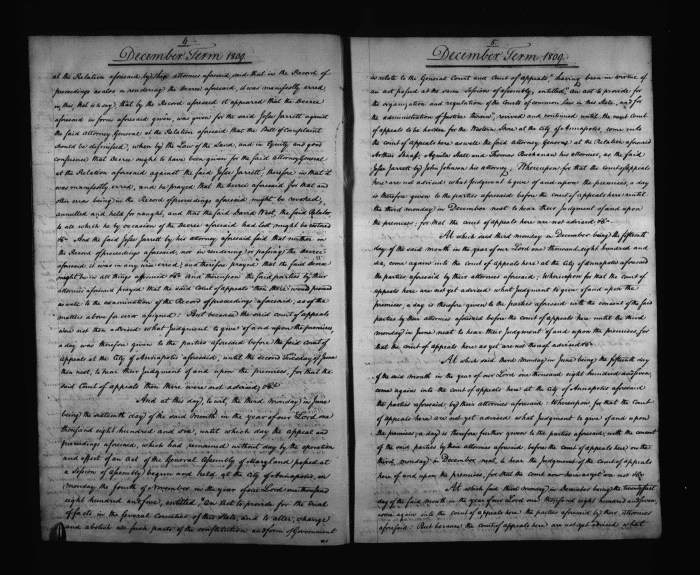 4
December Term 1809
at the Relation aforesaid by his attorney aforesaid, said that in the Record of
proceedings as also in rendering the decree aforesaid, it was manifestly erred
in this, that is to say, that by the Record aforesaid it appeared that the decree
aforesaid in form aforesaid given, was given for the said Jesse Jarrett against
the said Attorney General at the Relation aforesaid that the Bill of Complaint
should be dismissed, when by the Law of the Land, and in Equity and good
conscience that decree ought to have been given for the said Attorney General
at the Relation aforesaid against the said Jesse Jarrett, therefore in that it
was manifestly erred, and he prayed that the decree aforesaid for that and
other errors being in the Record of proceedings aforesaid might be revoked,
annulled and held for naught, and that the said David West, the said Relator,
to all which he by occasion of the Decree aforesaid had lost might be restored
&c And the said Jesse Jarrett by his attorney aforesaid said that neither in
the Record of proceedings aforesaid, nor in rendering or passing the decree
aforesaid it was in any wise erred; and therefore prayed that the said decree
might be in all things affirmed &c and thereupon the said parties by their
attornies aforesaid prayed that the said Court of appeals then there would proceed
as well to the examination of the Record of proceedings aforesaid, as of the
matters above for error assigned: But because the said court of appeals
was not then advised what Judgment to give of and upon the premises,
a day was therefore given to the parties aforesaid before the said court of
appeals at the City of Annapolis aforesaid, until the second Tuesday of June
then next, to hear their Judgment of and upon the premises, for that the
said Court of appeals then there were not advised, &c
And at this day, to wit, the third Monday in June
being the sixteenth day of the said month in the year of our Lord one
thousand eight hundred and six, until which day the appeal and
proceedings aforesaid, which had remained without day by the operation
and effect of an Act of the General Assembly of Maryland passed at
a Session of Assembly begun and held, at the City of Annapolis, on
monday the fourth of November, in the year of our Lord one thousand
eight hundred and five, entitled, "An act to provide for the trial
of facts in the several Counties of this State, and to alter, change
and abolish all such parts of the constitution and form of Government
as
5
December Term 1809
as relate to the General Court and Court of appeals", having been in virtue of
an act passed at the same Session of assembly, entitled, "an act to provide for
the organization and regulation of the Courts of common law in this State, and for
the administration of Justice therein", revived and continued until the next Court
of appeals to be holden for the Western Shore at the City of Annapolis, come into
the court of appeals here as well the said attorney General at the relation aforesaid
Arthur Shaaff, Aquila Hall and Thomas Buchanan his attornies, as the said
Jesse Jarrett by John Johnson his attorney. Whereupon for that the Court of Appeals
here are not advised what Judgment to give of and upon the premises, a day
is therefore given to the parties aforesaid before the court of appeals here until
the third monday in December next to hear their Judgment of and upon
the premises; for that the court of appeals here are not advised &c
At which said third monday in December being the fifteenth
day of the said month in the year of our Lord one thousand eight hundred and
six, come again into the court of appeals here at the city of Annapolis aforesaid
the parties aforesaid by their attornies aforesaid; Whereupon for that the court of
appeals here are not yet advised what Judgment to give of and upon the
premises, a day is therefore given to the parties aforesaid with the consent of the said
parties by their attornies aforesaid before the court of appeals here until the third
monday in June next to hear their Judgment of and upon the premises, for
that the court of appeals here as yet are not thereof advised &c
At which said third Monday in June being the fifteenth day
of the said month in the year of our Lord one thousand eight hundred and seven,
come again into the court of appeals here at the city of Annapolis aforesaid
the parties aforesaid by their attornies aforesaid: Whereupon for that the Court
of appeals here are not yet advised what Judgment to give of and upon
the premises, a day is therefore further given to the parties aforesaid, with the consent
of the said parties by their attornies aforesaid, before the court of appeals here on the
third monday in December next, to hear the judgment of the court of appeals
here of and upon the premises, for that the court now here as yet are not &c
At which said third monday in December being the twenty first
day of the said month in the year of our Lord one thousand eight hundred and seven,
come again into the court of appeals here the parties aforesaid by their attornies
aforesaid: But because the court of appeals here are not yet advised what